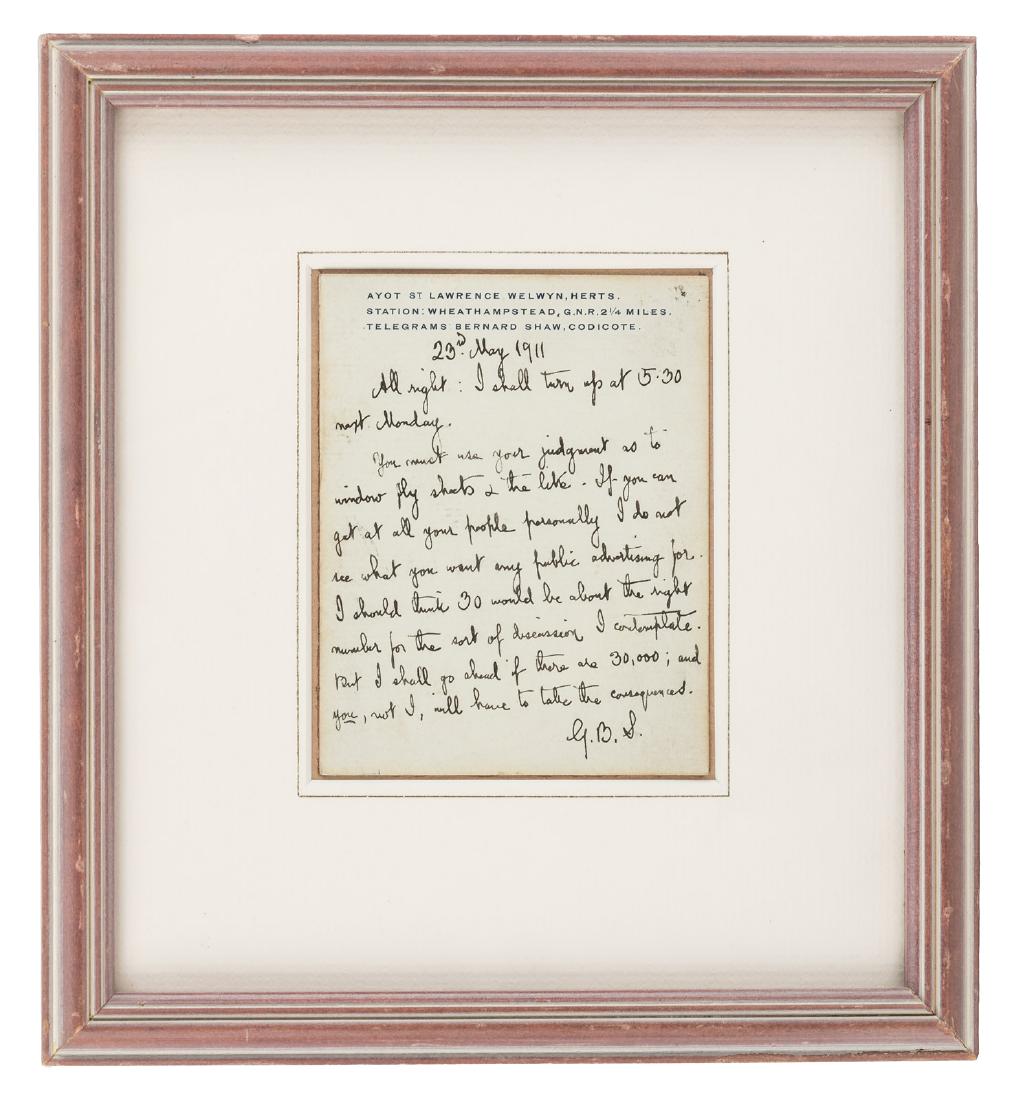 AYOT ST LAWRENCE, WELWYN, HERTS.
STATION: WHEATHAMPSTEAD, G.N.R. 2¼ MILES.
TELEGRAMS: BERNARD SHAW, CODICOTE.
23rd. May 1911
All right: I shall turn up at 5.30
next Monday.
You must use your judgment as to
window fly sheets & the like. If you can
get at all your people personally I do not
see what you want any public advertising for.
I should think 30 would be about the right
number for the sort of discussion I contemplate.
But I shall go ahead if there are 30,000; and
you, not I, will have to take the consequences.
G.B.S.